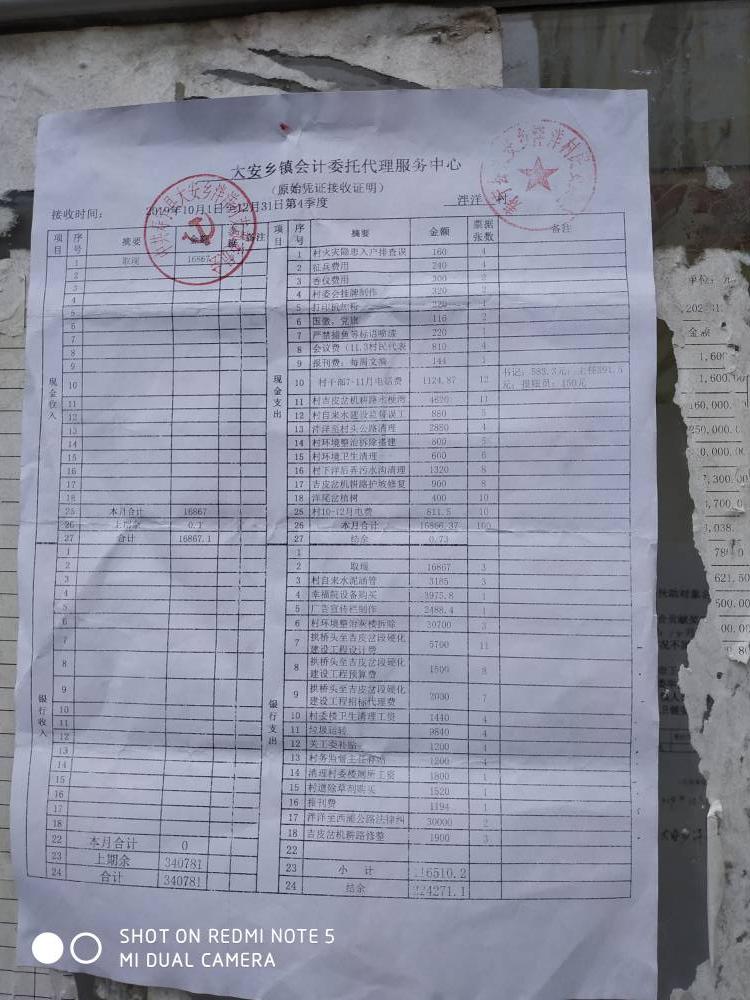 大安乡镇会计委托代理服务中心
（原始凭证接收证明）
接收时间： 2019年10月1日至12月31日第4季度 泮洋 村
项目 序号 摘要 金额 票据 备注 项目 序号 摘要 金额 票据张数 备注
现金收入
1 取现 16867
2
3
4
5
6
7
8
9
10
11
12
13
14
15
16
17
18
25 本月合计 16867
26 上期余 0.1
27 合计 16867.1
现金支出
1 村火灾隐患入户排查误 160 4
2 征兵费用 240 4
3 香仪费用 300 2
4 村委会挂牌制作 320 2
5 打印机加粉 220
6 国徽，党旗 116 2
7 严禁捕鱼等标语喷漆 220 1
8 会议费（11.3村民代表 810 4
9 报刊费：每周文摘 144 1
10 村干部7-11月电话费 1124.87 12 书记：583.3元；主任391.5元；报账员：150元
11 村吉皮岔机耕路水梗湾 4620 11
12 村自来水建设监督误工 880 5
13 泮洋至村头公路清理 2880 4
14 村环境整治拆除搭建 800 5
15 村环境卫生清理 600 6
16 村下洋后弄污水沟清理 1320 8
17 吉皮岔机耕路护坡修复 900 8
18 洋尾岔植树 400 10
25 村10-12月电费 811.5 10
26 本月合计 16866.37 100
27 结余 0.73
银行收入
1
2
3
4
5
6
7
8
9
10
11
12
13
14
15
16
17
18
22 本月合计 0
23 上期余 340781
24 合计 340781
银行支出
1
2 取现 16867 3
3 村自来水泥涵管 3185 3
4 幸福院设备购买 3975.8 1
5 广告宣传栏制作 2488.4 1
6 村环境整治灰楼拆除 30700 3
7 拱桥头至吉皮岔段硬化建设工程设计费 5700 11
8 拱桥头至吉皮岔段硬化建设工程预算费 1500 8
9 拱桥头至吉皮岔段硬化建设工程招标代理费 2000 7
10 村委楼卫生清理工资 1440 4
11 垃圾运转 9840 4
12 关工委补贴 1200 4
13 村务监督主任补贴 1200 4
14 清理村委楼厕所工资 1800 1
15 村道除草剂购买 1520 1
16 报刊费 1194 1
17 泮洋至西浦公路法律纠 30000 2
18 吉皮岔机耕路修整 1900 3
22
23 小 计 16510.2
24 结余 24271.1
单位：元
金额
1,600
160,000.
250,000.
7,300.00
4,700.0
621.50
500.00
SHOT ON REDMI NOTE 5
MI DUAL CAMERA